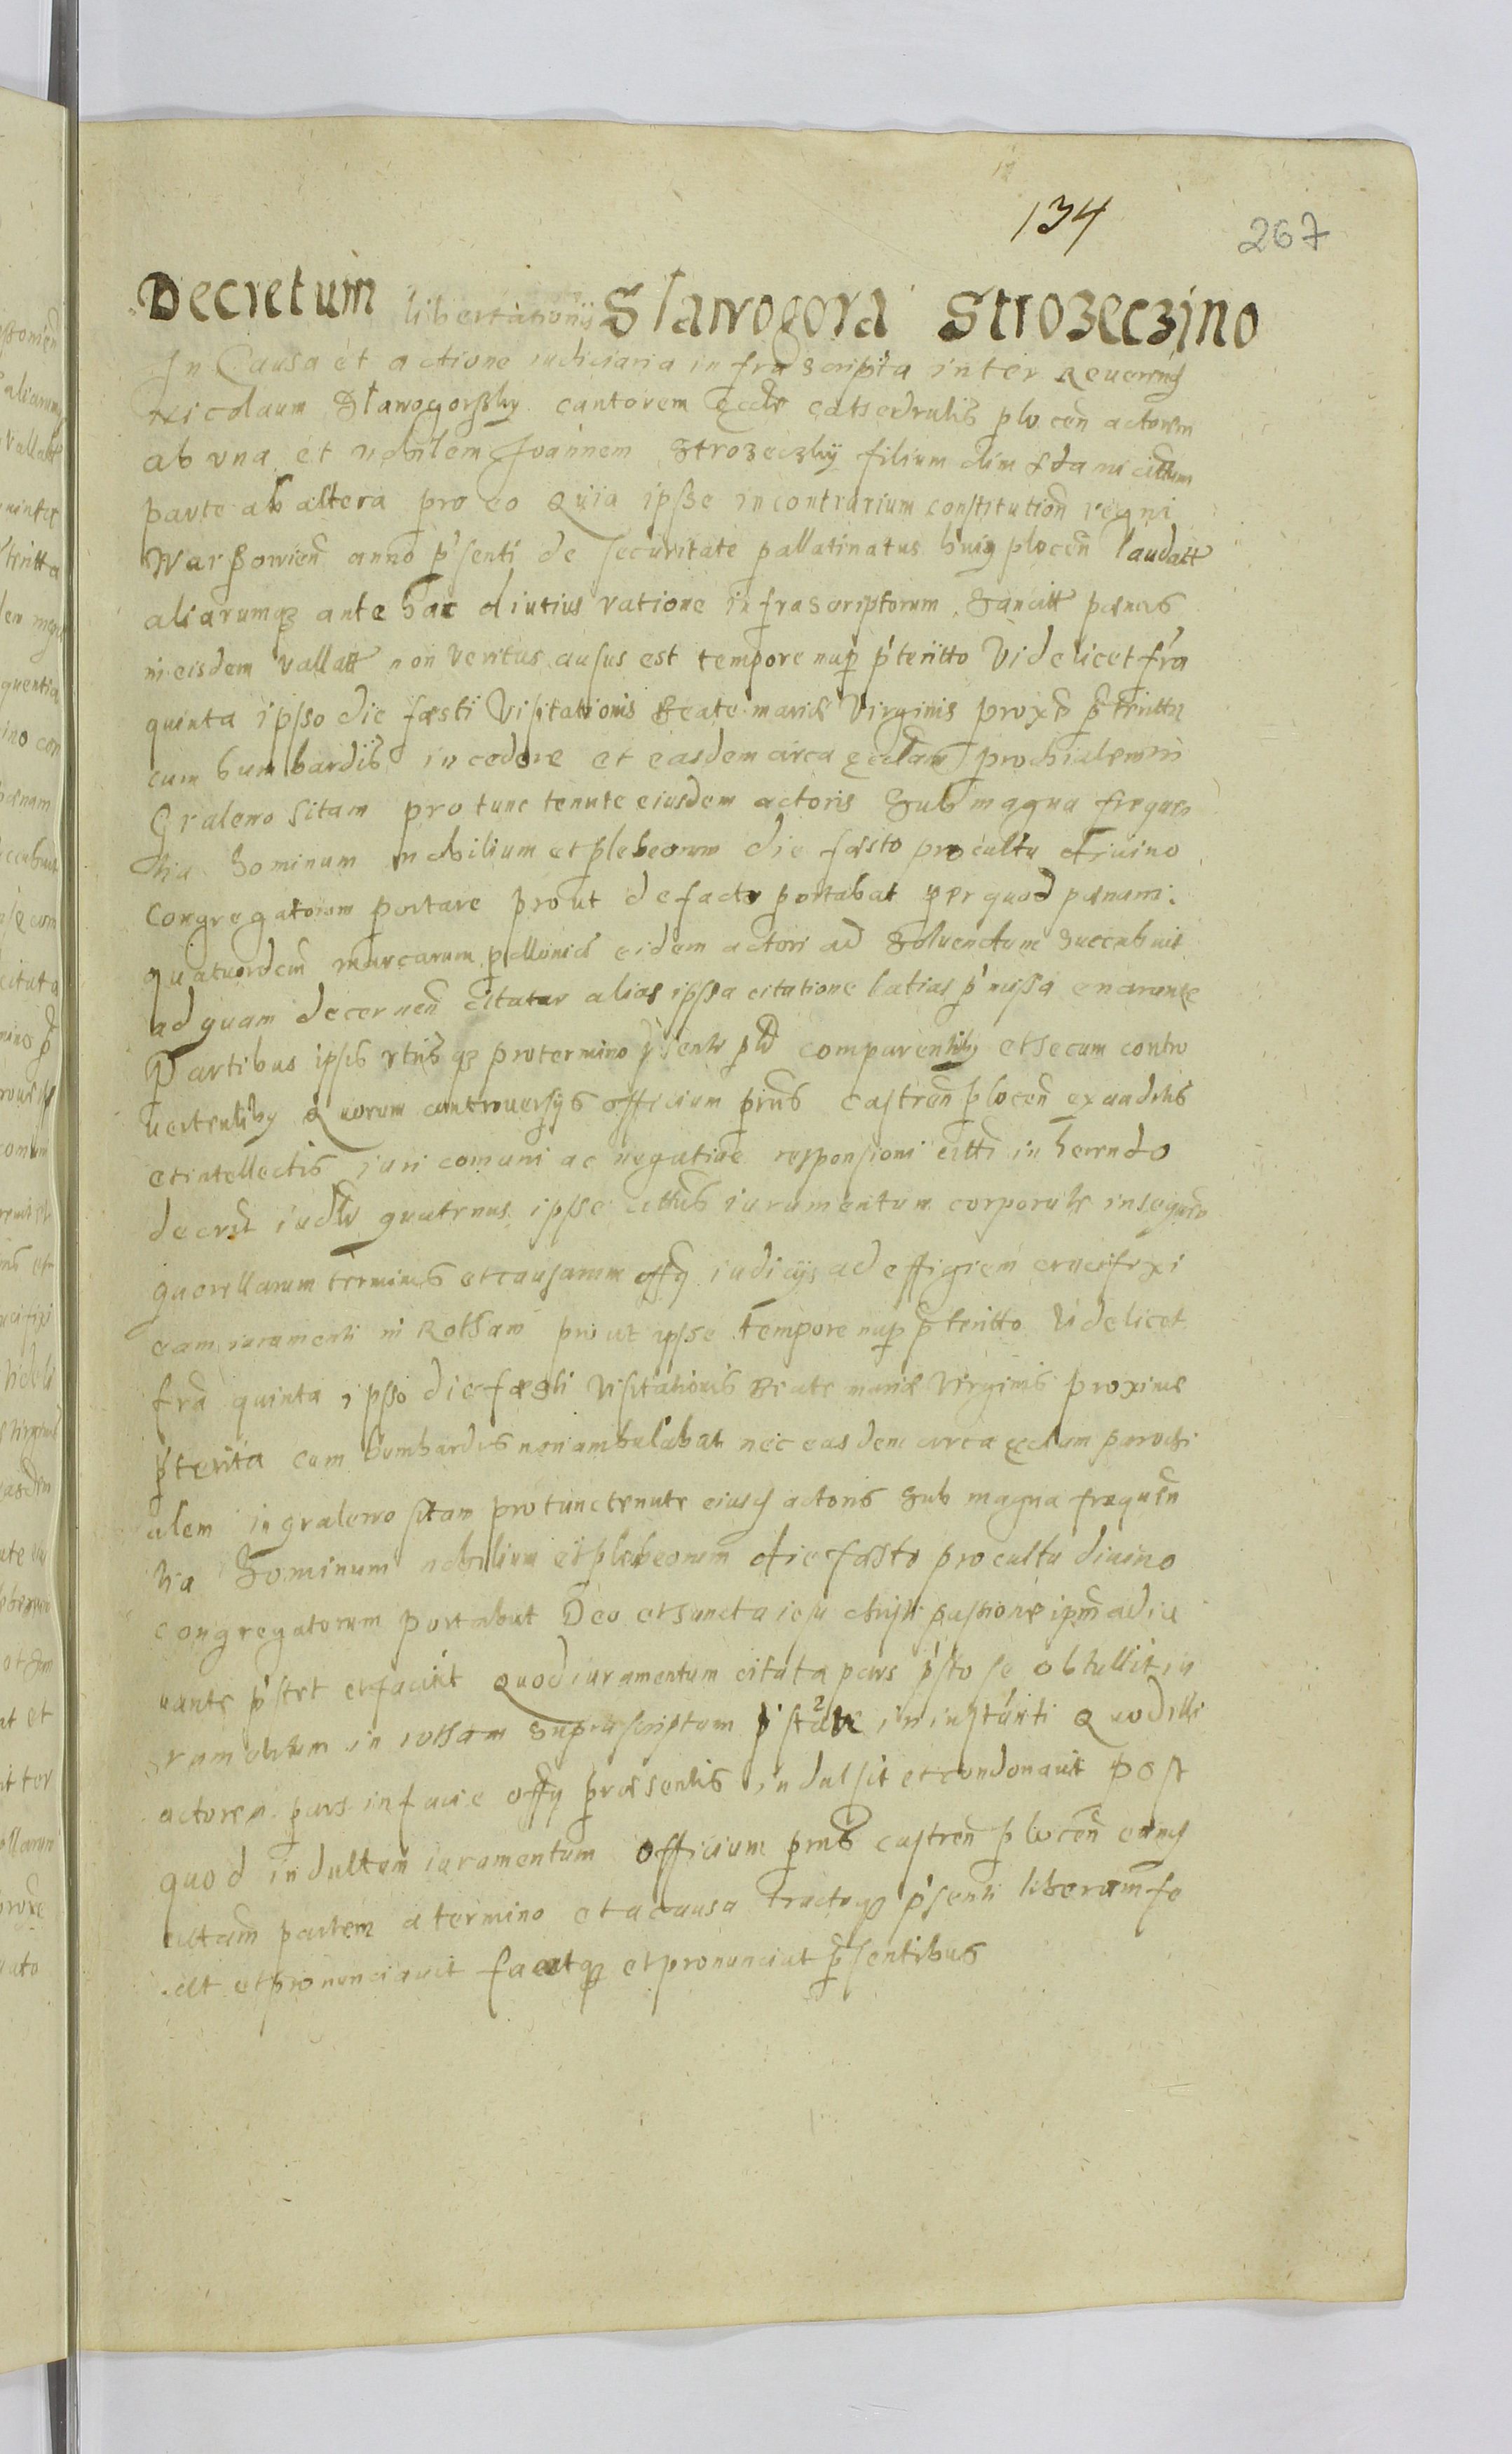 134
267
Decretum libertationis Slawogora Strozeczino
In Causa et actione iudiciaria infrascripta inter Reuerend
Nicolaum Slawogorsky cantorem Eccle catsedralis plocen actorem
ab una et nobilem Joannem Strozeczky filium olim Stani cittum
parte ab altera pro eo Quia ipsse incontrarium constitution regni
Warssowien anno p'senti de securitate pallatinatus huig plocen laudatt
aliarumq ante hac diutius ratione infrascriptorum Sancitt pænas
in eisdem vallatt non veritus ausus est tempore nup p'teritto Videlicet fra
quinta ipsso die fæsti Visitationis Beate mariæ Virginis prox p teritta
cum bumbardis incedere et easdem circa eccliam prochialem in
Gralewo sitam protunc tenute eiusdem actoris Sub magna frequen
tia hominum nobilium et plebeorum die fæsto pro cultu diuino
congregatorum portare prout defacto portabat per quod pænam
quatuordecim marcarum pollonic eidem actori ad Soluendum Succubuit
ad quam decernen citatur alias ipssa citatione latius p'missa enarrante
Partibus ipsis utrisq pro termino p'senti comparentiby et secum contro
uertentiby Quorum controuersys officium pnns castren plocen exauditis
et intellectis iuri comuni ac negatiuæ responsioni citti inherendo
decreuit quatenus ipsse cittus iuramentum corporale in sequen
querellarum terminis et causarum offy iudicys ad effigiem crucifixi
eam iuramenti in Rotham prout ipsse tempore nup p teritto Videlicet
fra quinta ipsso die fæsti Visitationis Beate mariæ Virginis proximæ
p'terita cum bumbardis non ambulabat nec easdem circa eccliam parochi
alem in gralewo sitam protunc tenute eiusd actoris Sub magna frequen
tia hominum nobilium et plebeorum die fæsto pro cultu diuino
congregatorum portabat Deo et sancta iesu christi passione ipm adiu
uante p'stet et faciet Quod iuramentum citata pars p'sto se obtullit in
iuramentum in rotham Supra scriptam p'stare in instanti Quod illi
actorea pars in facie offy præsentis indulsit et condonauit Post
quod indultum iuramentum officium pnns castren plocen eand
cittam partem a termino et a causa tractuq p'senti liberam fe
cit et pronunciauit facitq et pronunciat p sentibus